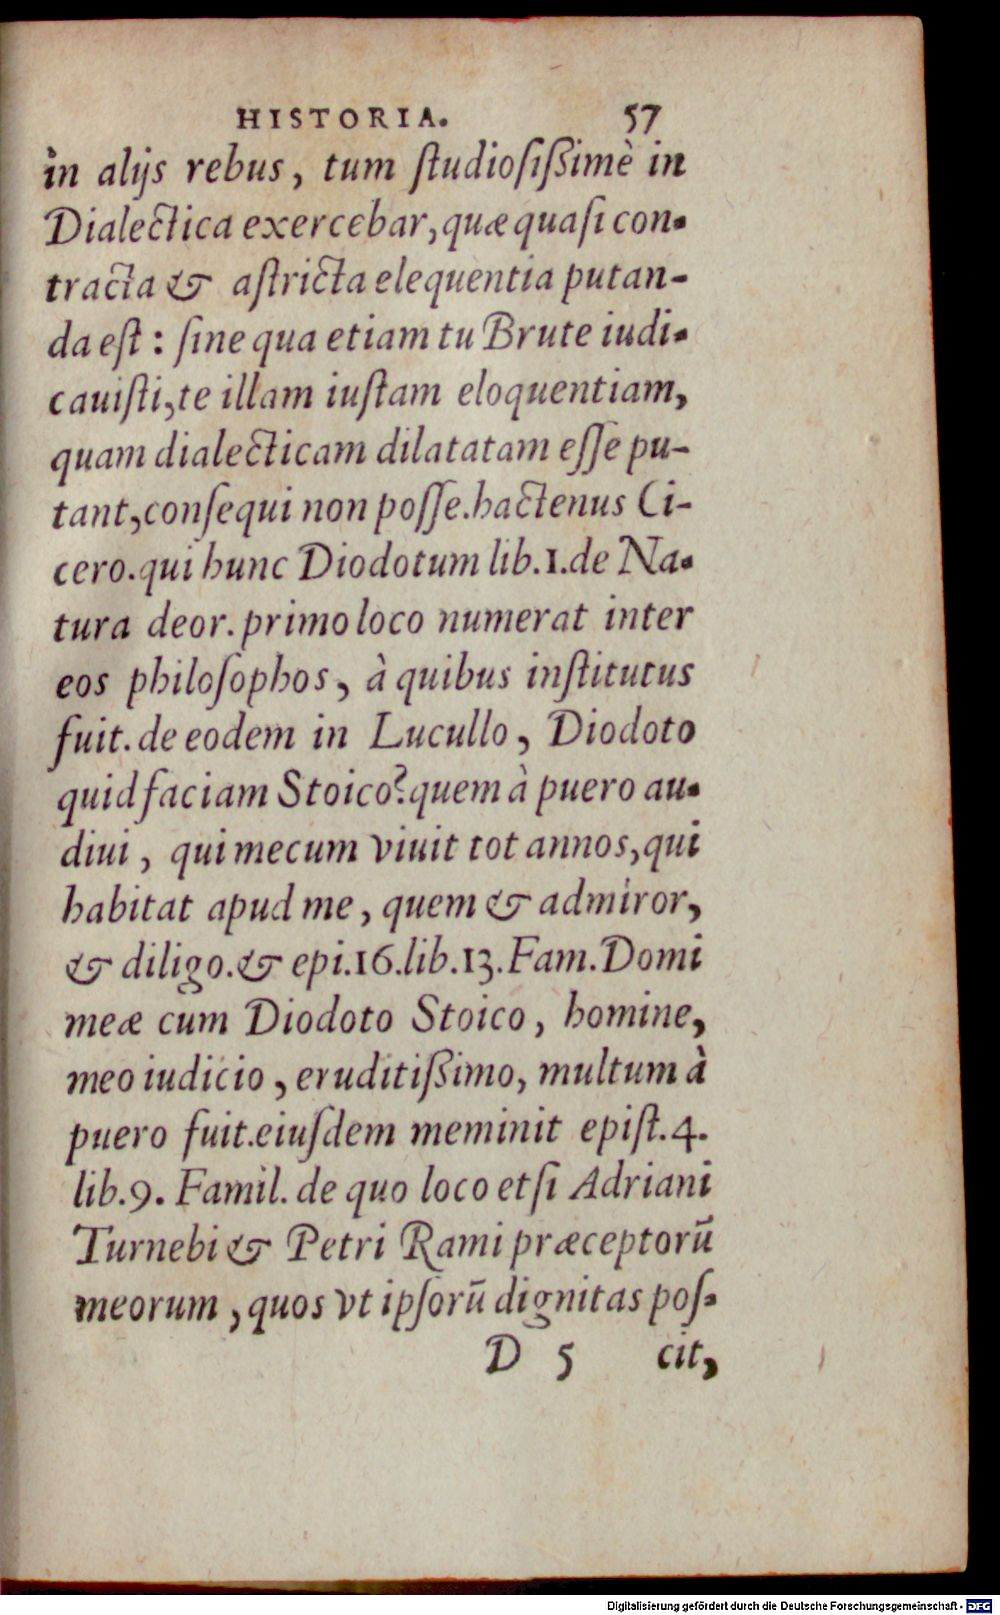 HISTORIA. 57
in alijs rebus, tum ſtudioſiſsimè in
Dialectica exercebar, quæ quaſi con-
tracta & aſtricta elequentia putan-
da eſt : ſine qua etiam tu Brute iudi-
cauiſti, te illam iuſtam eloquentiam,
quam dialecticam dilatatam eſſe pu-
tant, conſequi non poſſe. hactenus Ci-
cero. qui hunc Diodotum lib. 1. de Na-
tura deor. primo loco numerat inter
eos philoſophos, à quibus inſtitutus
fuit. de eodem in Lucullo, Diodoto
quid faciam Stoico? quem à puero au-
diui, qui mecum viuit tot annos, qui
habitat apud me, quem & admiror,
& diligo. & epi. 16. lib. 13. Fam. Domi
meæ cum Diodoto Stoico, homine,
meo iudicio, eruditiſsimo, multum à
puero fuit. eiuſdem meminit epiſt. 4.
lib. 9. Famil. de quo loco etſi Adriani
Turnebi & Petri Rami præceptorũ
meorum, quos vt ipſorũ dignitas poſ-
D 5 cit,
Digitalisierung gefördert durch die Deutsche Forschungsgemeinschaft - DFG